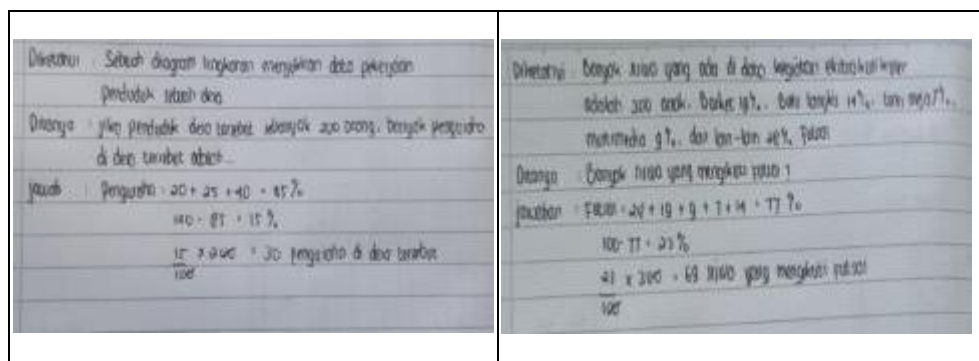 Diketahui : Sebuah diagram lingkaran menyajikan data pekerjaan
penduduk sebuah desa
Ditanya : jika penduduk desa tersebut sebanyak 200 orang, banyak pengusaha
di desa tersebut adalah...
jawab : Pengusaha : 20 + 25 + 40 = 85%
100 - 85 = 15%
15/100 x 200 = 30 pengusaha di desa tersebut
Diketahui : Banyak siswa yang ada di data kegiatan ekstrakurikuler
adalah 300 anak. Basket 19%. Bulu tangkis 14%. tenis meja 7%.
multimedia 9%. dan lain-lain 28%. Futsal
Ditanya : Banyak siswa yang mengikuti futsal ?
jawaban : Futsal = + 19 + 9 + 7 + 14 = 77%
100 - 77 = 23%
23/100 x 300 = 69 siswa yang mengikuti futsal